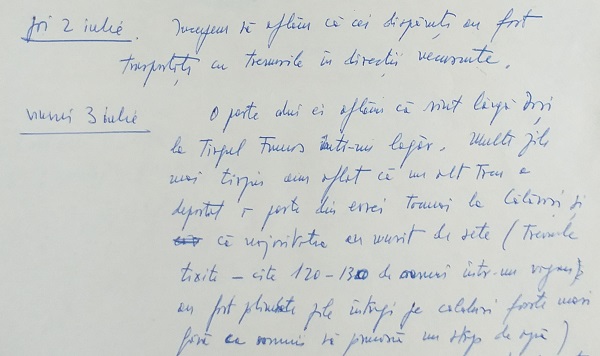 joi 2 iulie. Începem să aflăm că cei dispăruți au fost
trasportați cu trenurile în direcții necunoscute.
vineri 3 iulie O parte din ei aflăm că sînt lângă Iași
la Tîrgul Frumos într-un lagăr. Multe zile
mai tîrziu am aflat că un alt tren a
deportat o parte din evrei tocmai la Călărași și
că majoritatea au murit de sete (Trenurile
tixite – cîte 120-130 de oameni într-un vagon)
au fost plimbate zile întregi pe călduri foarte mari
fără ca nimeni să primească un strop de apă)